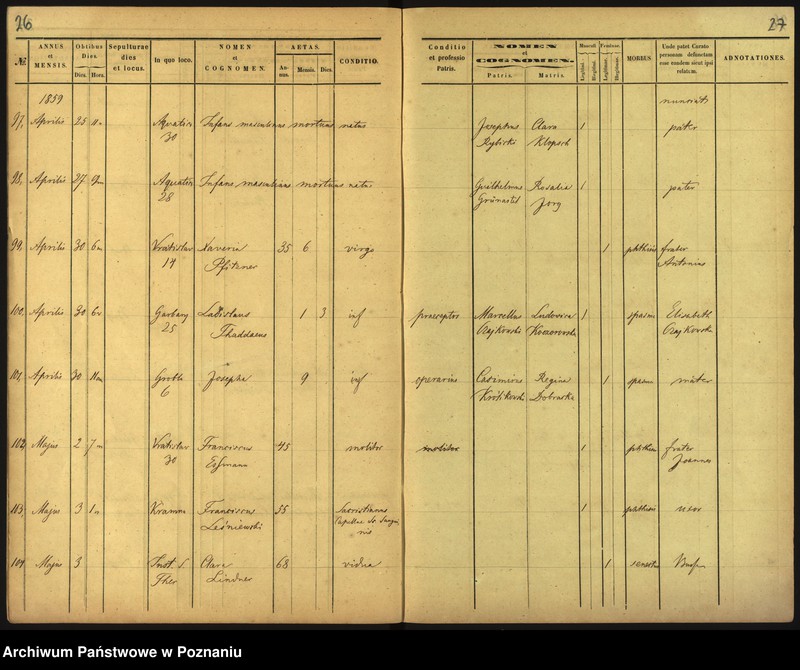 26
27
№
ANNUS et MENSIS.
Obitus Dies.
Dies. Hora.
Sepulturae dies et locus.
In quo loco.
NOMEN et COGNOMEN.
AETAS.
Annus. Mensis. Dies.
CONDITIO.
Conditio et professio Patris.
NOMEN et COGNOMEN.
Patris. Matris.
Masculi. Feminae.
Legitimi. Illegitimi. Legitimae. Illegitimae.
MORBUS
Unde patet Curato personam defunctam esse eandem sicut ipsi relatum.
ADNOTATIONES.
1859
97, Aprilis 25 Infans masculinus mortuus natus Josephus Clara 1 pater
30 Rybicki Klopsch
98, Aprilis 27 Infans masculinus mortuus natus Guilhelmus Rosalia 1 pater
28 Jorg
99, Aprilis 30 6 Vratislav Xaveria 35 6 virgo 1 phthisis frater
14 Pfitzner Antonius
100, Aprilis 30 6 Garbary Ladislaus 1 3 inf praeceptor Marcellus Ludovica 1 spasm Elisabeth
25 Thaddaeus Czajkowski Czajkowska
101, Aprilis 30 11 Grobla Josepha 9 inf operarius Casimirus Regina 1 spasm mater
6 Królikowski Dobraska
102, Majus 2 7 Vratislav Franciscus 45 molitor molitor 1 phthisis frater
30 Joannes
113, Majus 3 1 Kramm Franciscus 55 Sacristianus 1 phthisis uxor
Leśniewski Capellae Sr. Sangui
nis
104 Majus 3 Inst. S. Clara 68 vidua 1
Ther Lindner
Archiwum Państwowe w Poznaniu